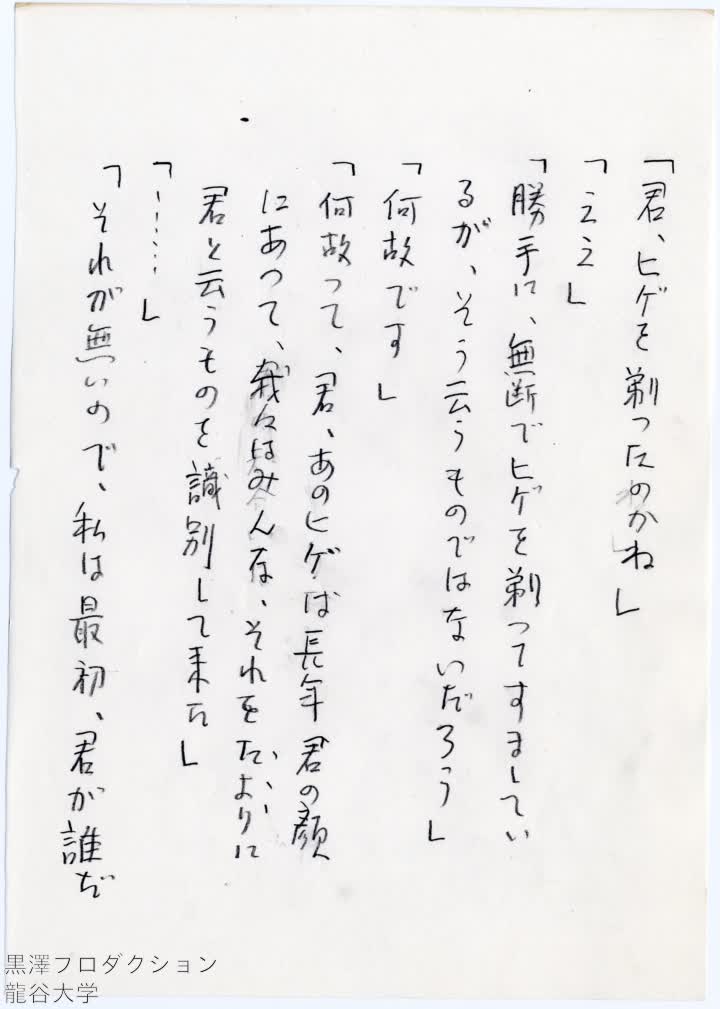 「君、ヒゲを剃ったのかね」
「ええ」
「勝手に、無断でヒゲを剃ってすましてい
るが、そう云うものではないだろう」
「何故です」
「何故って、君、あのヒゲは長年君の顔
にあって、我々はみんな、それをたよりに
君と云うものを識別して来た」
「……」
「それが無いので、私は最初、君が誰だ
黒澤プロダクション
龍谷大学